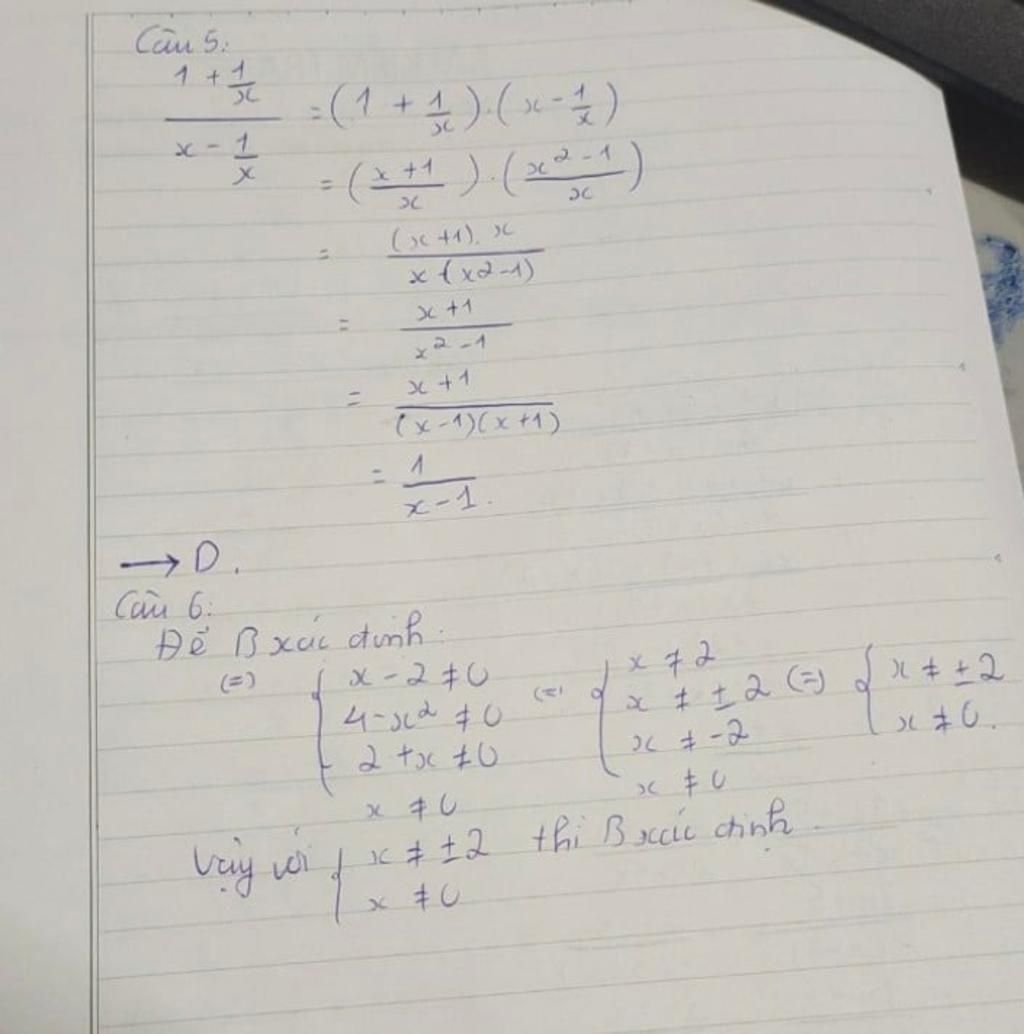 Câu 5:
(1 + 1/x)/(x - 1/x) = (1 + 1/x).(x - 1/x)
= ((x + 1)/x).((x² - 1)/x)
= ((x+1).x)/(x.(x2-1))
= (x + 1)/(x² - 1)
= (x + 1)/((x-1)(x+1))
= 1/(x - 1).
→ D.
Câu 6:
Để B xác định:
(=) { x - 2 ≠ 0; 4 - x² ≠ 0; 2 + x ≠ 0; x ≠ 0 (=) { x ≠ 2; x ≠ ± 2; x ≠ -2; x ≠ 0 (=) { x ≠ ± 2; x ≠ 0.
Vậy với { x ≠ ± 2; x ≠ 0 thì B xác định.